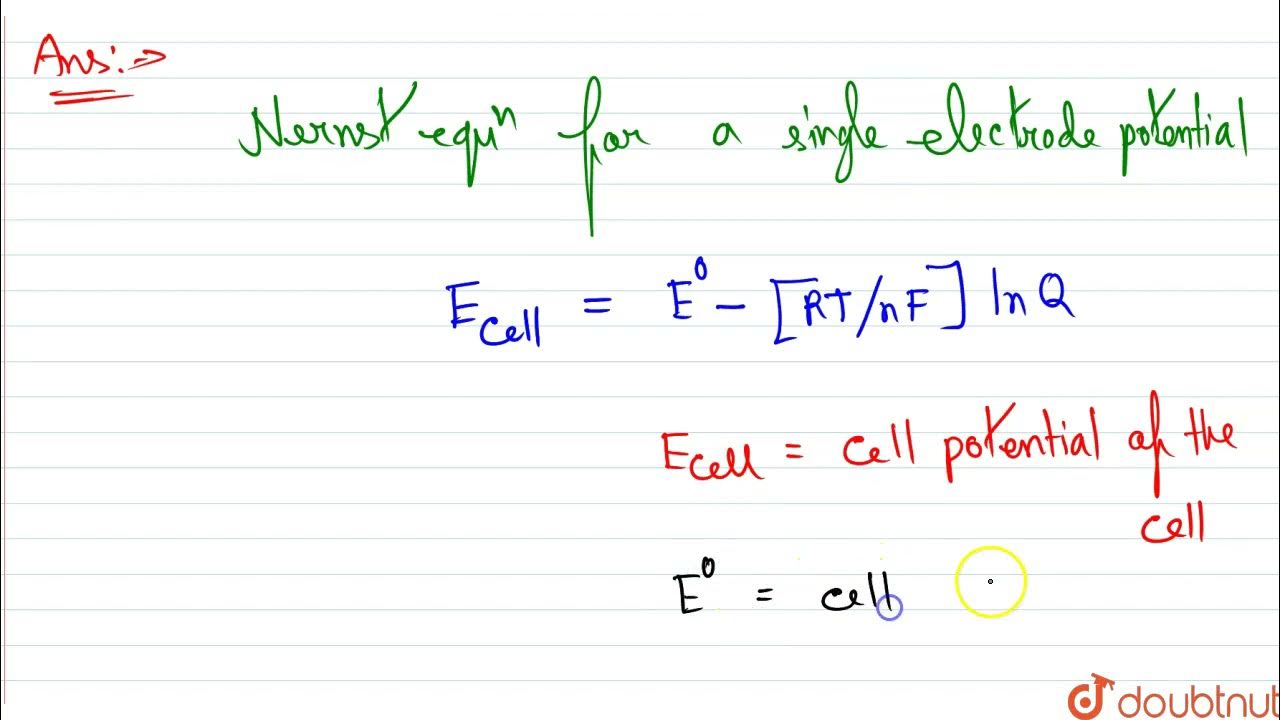 Ans:→
Nernst equⁿ for a single electrode potential
E_cell = E⁰ - [RT/nF] ln Q
E_cell = cell potential of the
cell
E⁰ = cell
doubtnut